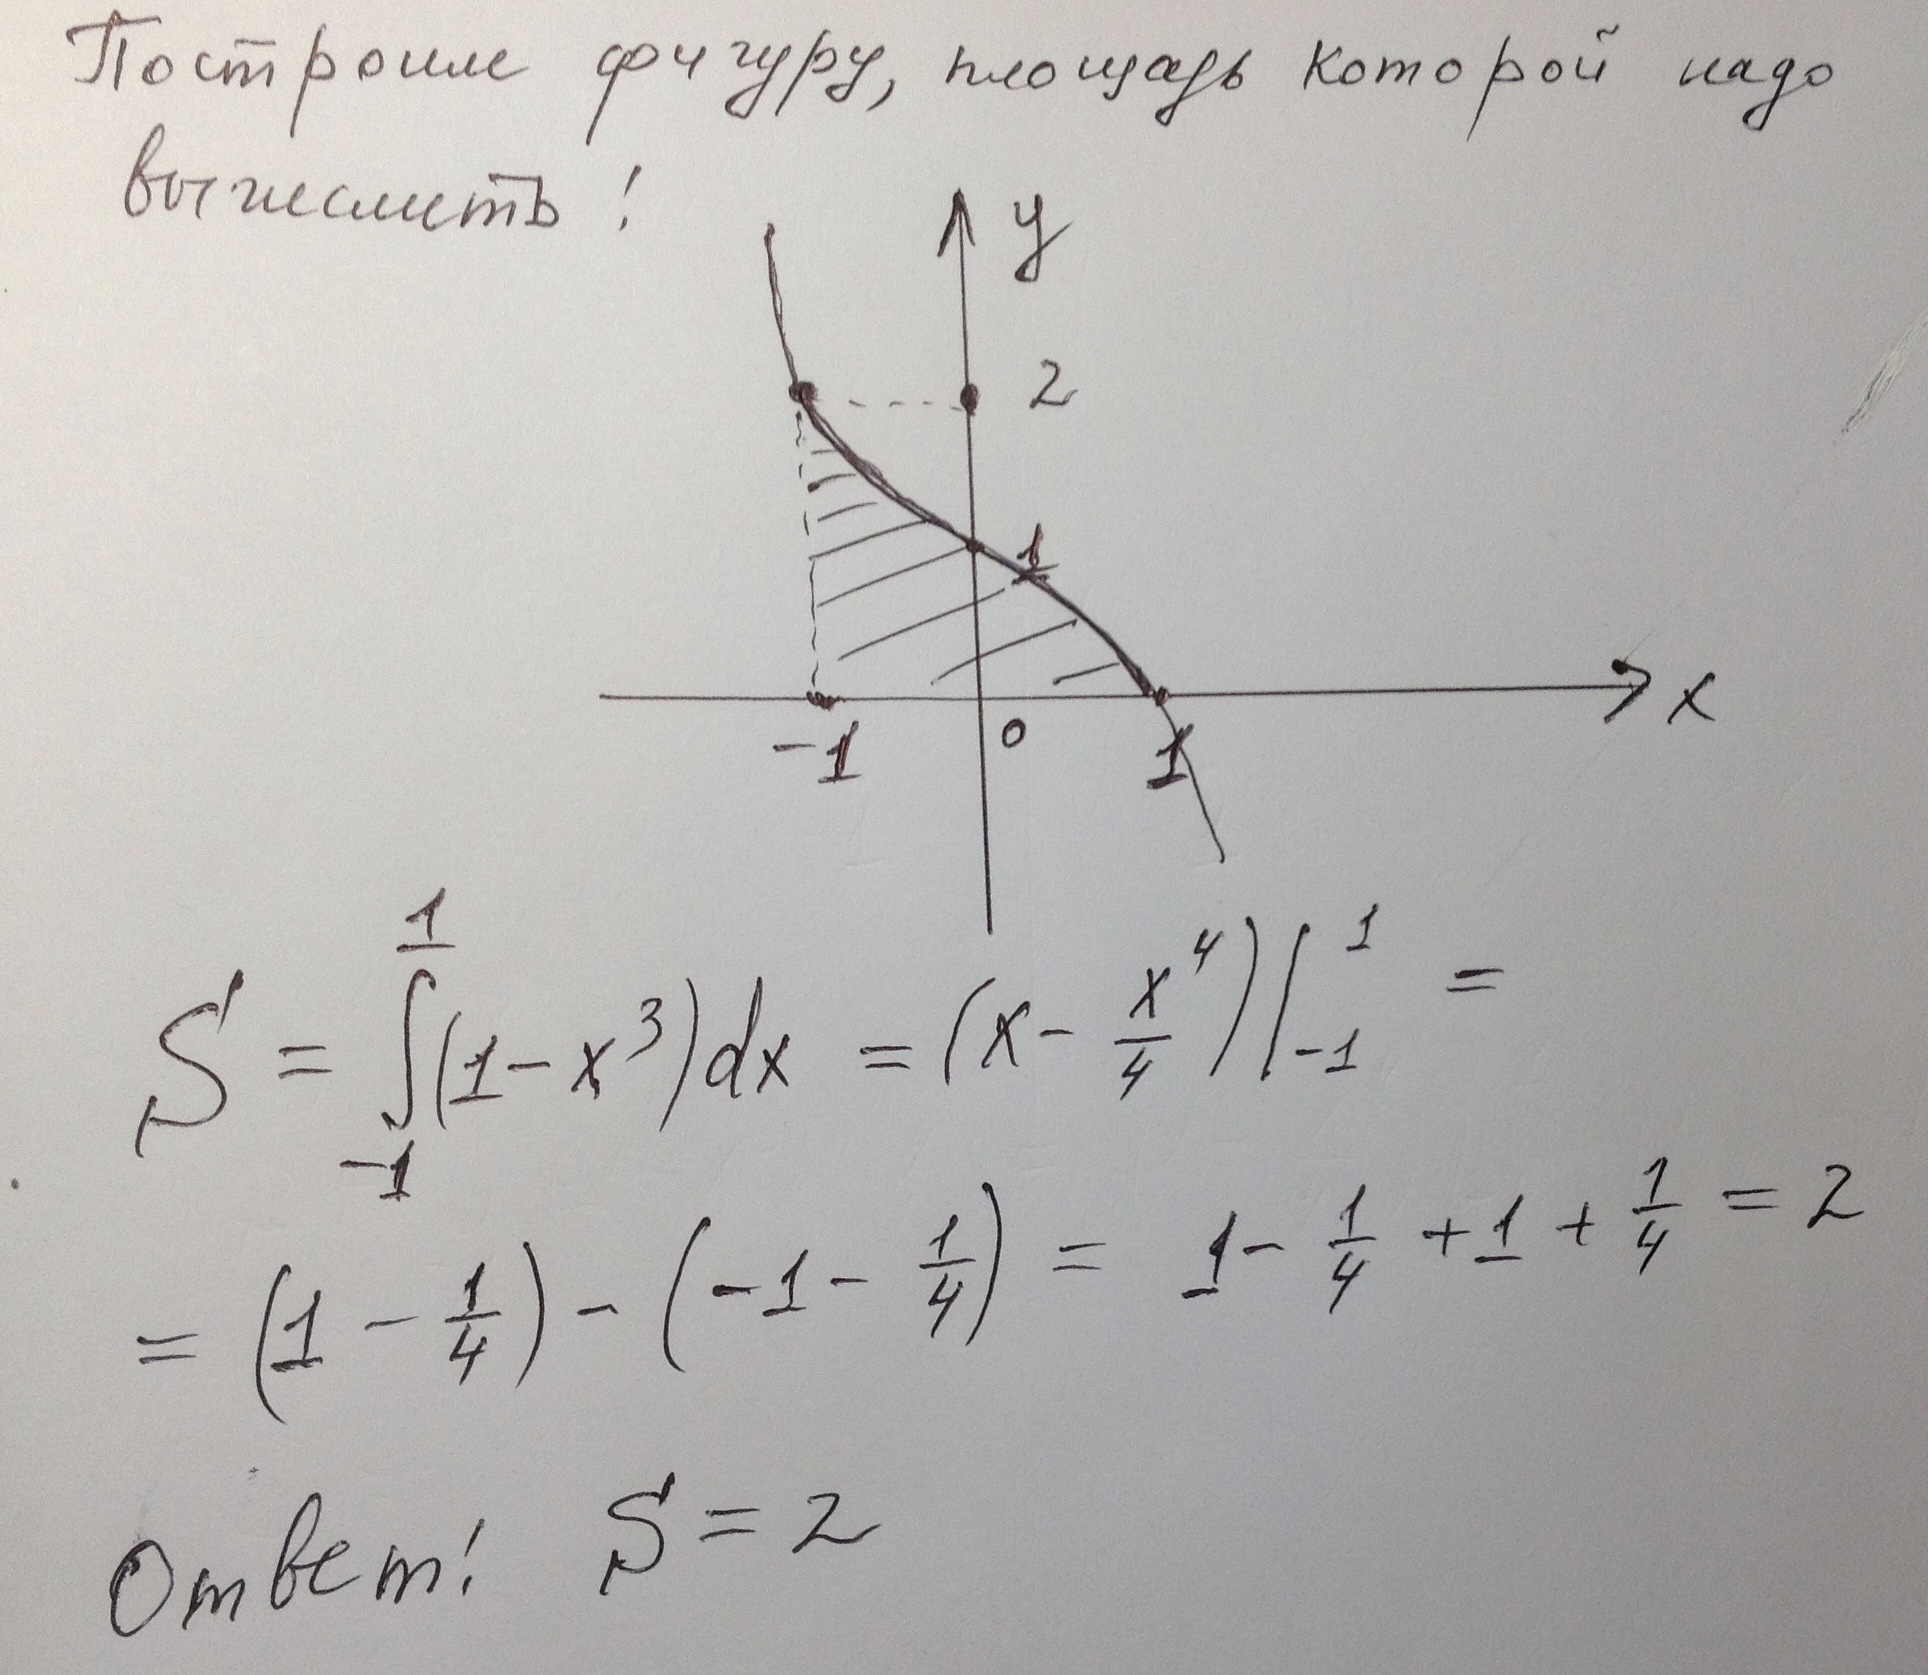 Построим фигуру, площадь которой надо
вычислить!
y
2
1
-1 0 1 x
S = ∫₋₁¹ (1-x³)dx = (x - x⁴/4)|₋₁¹ =
= (1 - 1/4) - (-1 - 1/4) = 1 - 1/4 + 1 + 1/4 = 2
Ответ! S = 2